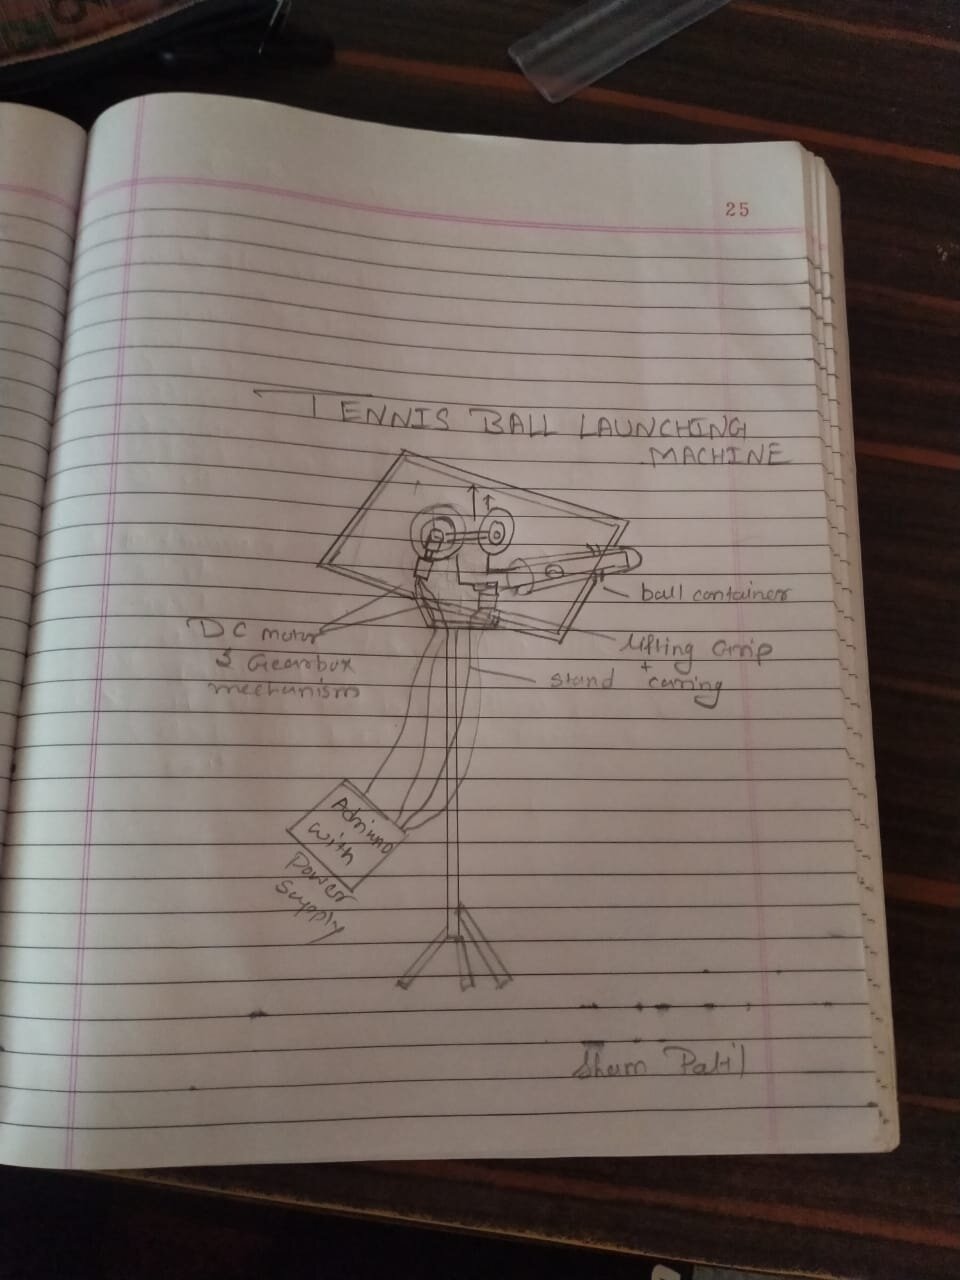 25
TENNIS BALL LAUNCHING
MACHINE
ball container
DC motor
& Gearbox
mechanism
lifting Grip
+
carring
stand
Adriuno
with
Power
Supply
Sham Patil